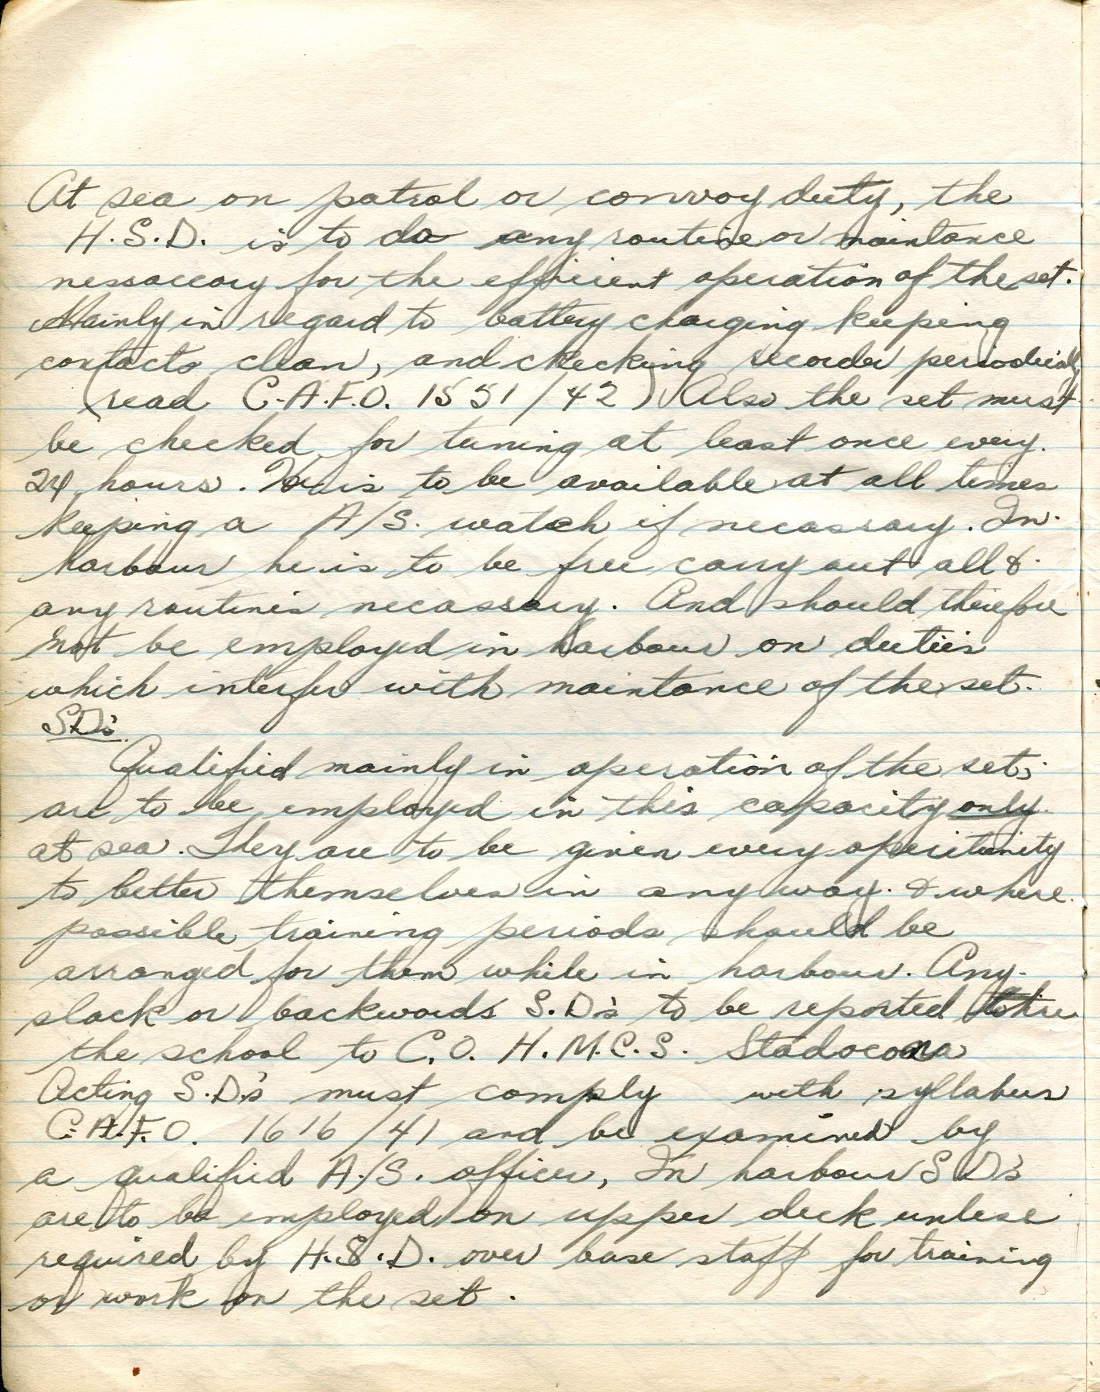 At sea on patrol or convoy duty, the
H.S.D. is to do any routine or maintance
nessaccary for the efficient operation of the set.
Mainly in regard to battery charging keeping
contacts clean, and checking recorder periodically
(read C.A.F.O. 1551/42) Also the set must
be checked for tuning at least once every
24 hours. He is to be available at all times
keeping a A/S. watch if necassary. In
harbour he is to be free carry out all &
any routines necassary. And should therefore
not be employed in harbour on duties
which interfer with maintance of the set.
S.D's
Qualified mainly in operation of the set,
are to be employed in this capacity only
at sea. They are to be given every opertunity
to better themselves in any way. & where
possible training periods should be
arranged for them while in harbour. Any
slack or backwards S.D's to be reported thru
the school to C.O. H.M.C.S. Stadocona
Acting S.D's must comply with syllabus
C.A.F.O. 1616/41 and be examined by
a qualified A/S. officer, In harbour S D's
are to be employed on upper deck unlese
required by H.S.D. over base staff for training
or work on the set.